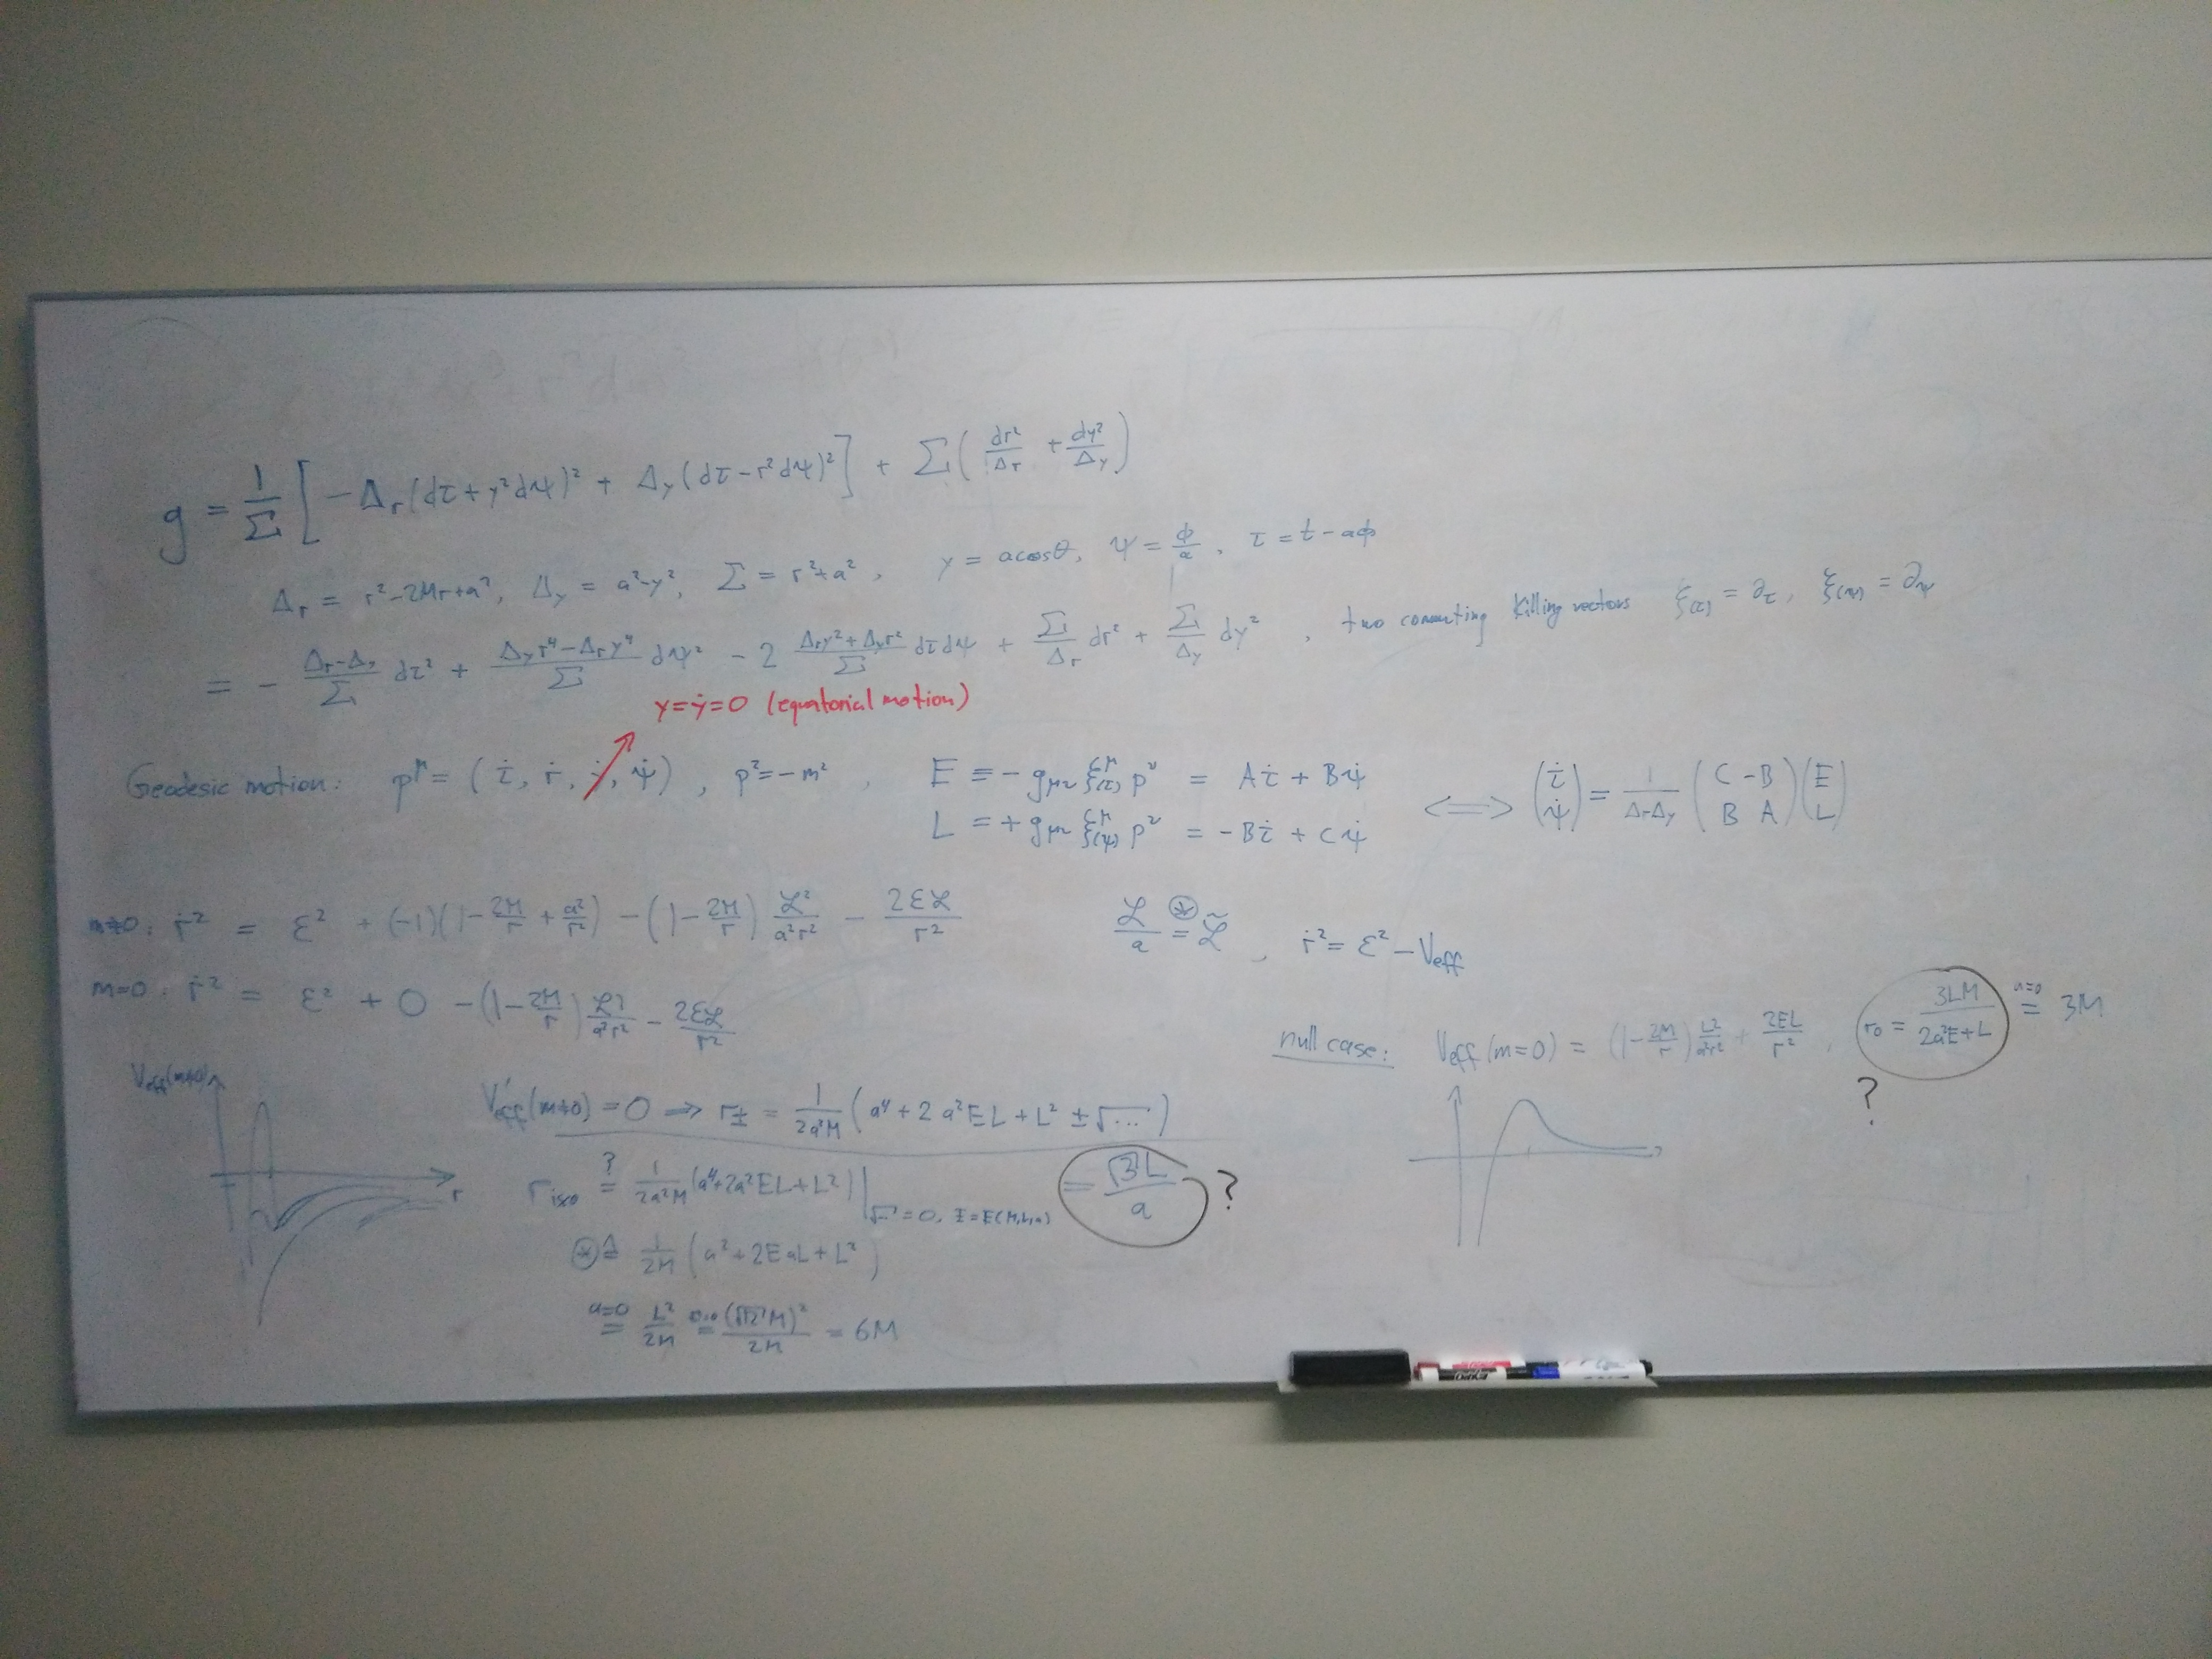 g = 1/Σ [ −Δ_r (dτ + y² dψ)² + Δ_y (dτ − r² dψ)² ] + Σ ( dr²/Δ_r + dy²/Δ_y )
Δ_r = r² − 2Mr + a², Δ_y = a² − y², Σ = r² + a², y = a cosθ, ψ = ϕ/a, τ = t − aϕ
= − (Δ_r − Δ_y)/Σ dτ² + (Δ_y r⁴ − Δ_r y⁴)/Σ dψ² − 2 (Δ_r y² + Δ_y r²)/Σ dτ dψ + Σ/Δ_r dr² + Σ/Δ_y dy², two commuting Killing vectors ξ_(τ) = ∂_τ, ξ_(ψ) = ∂_ψ
y = ẏ = 0 (equatorial motion)
Geodesic motion: p^μ = (τ̇, ṙ, ẏ, ψ̇), p² = −m², E ≡ − g_μν ξ^μ_(τ) p^ν = Aτ̇ + Bψ̇
L = + g_μν ξ^μ_(ψ) p^ν = −Bτ̇ + Cψ̇
⟺ (τ̇ ψ̇) = 1/(Δ_r Δ_y) (C −B B A) (E L)
m≠0: ṙ² = ε² + (−1)(1 − 2M/r + a²/r²) − (1 − 2M/r) ℒ²/(a²r²) − 2εℒ/r²
ℒ/a ⊛= ℒ̃, ṙ² = ε² − V_eff
m=0: ṙ² = ε² + 0 − (1 − 2M/r) ℒ²/(a²r²) − 2εℒ/r²
null case: V_eff(m=0) = (1 − 2M/r) L²/(a²r²) + 2EL/r², r₀ = 3LM/(2a²E + L) a=0 = 3M
?
V_eff(m≠0)
r
V'_eff(m≠0) = 0 ⇒ r± = 1/(2a²M) (a⁴ + 2a²EL + L² ± √...)
r_isco ?= 1/(2a²M) (a⁴ + 2a²EL + L²) |_√...=0, E=E(M,L,a) = √3L/a ?
⊛ ≙ 1/2M (a² + 2EaL + L²)
a=0 = L²/2M a=0 = (√12 M)²/2M = 6M
EXPO